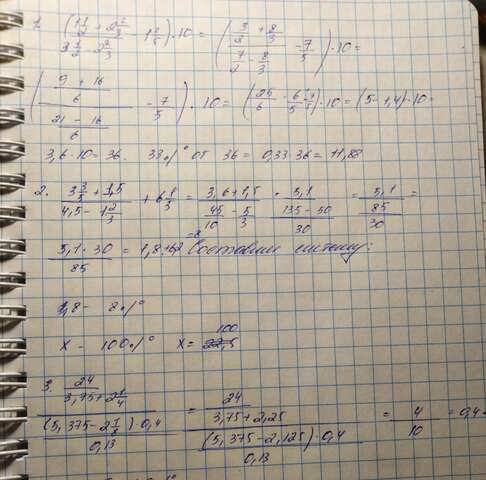 1. ((1 1/2 + 2 2/3)/(3 1/2 - 2 2/3) - 1 2/5) · 10 = ((3/2 + 8/3)/(7/2 - 8/3) - 7/5) · 10 =
(((9 + 16)/6)/((21 - 16)/6) - 7/5) · 10 = (25/6 · 6/5 - 7/5) · 10 = (5 - 1,4) · 10 =
3,6 · 10 = 36. 33% от 36 = 0,33 · 36 = 11,88
2. (3 3/5 + 1,5)/(4,5 - 1 2/3) + 6 1/3 = (3,6 + 1,5)/(45/10 - 5/3) = 5,1/((135 - 50)/30) = 5,1/(85/30) =
(5,1 · 30)/85 = 1,8 Составим систему:
1,8 - 8%
x - 100% x = 100
3. (24/(3,75 + 2 1/4))/(((5,375 - 2 1/8) · 0,4)/0,13) = (24/(3,75 + 2,25))/(((5,375 - 2,125) · 0,4)/0,13) = 4/10 = 0,4